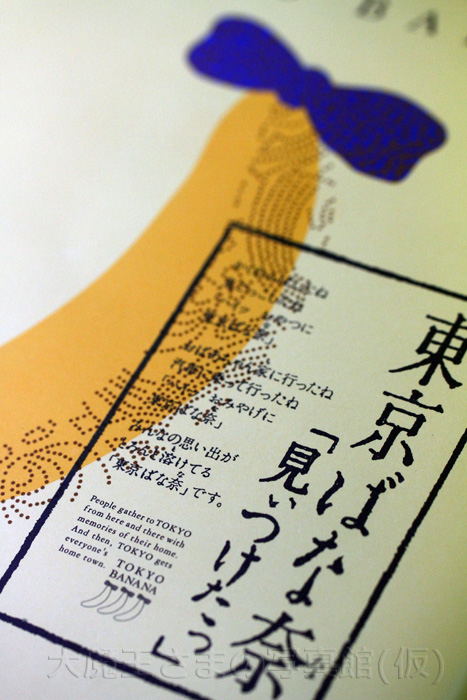 BA
東京ばな奈
「見ぃつけたっ」
おばあちゃん家に行ったね
汽車に乗って行ったね
おみやげに
「東京ばな奈」
みんなの思い出が
溶けてる
「東京ばな奈」です。
People gather to TOKYO
from here and there with
memories of their home.
And then, TOKYO gets
everyone's
home town.
TOKYO
BANANA
大魔王さまの写真館(仮)